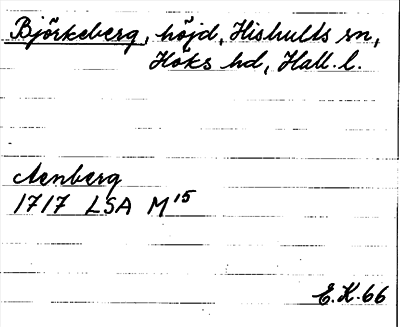 Björkeberg, höjd, Hishults sn,
Höks hd, Hall. l.
Aenberg
1717 LSA M15
E.K.66